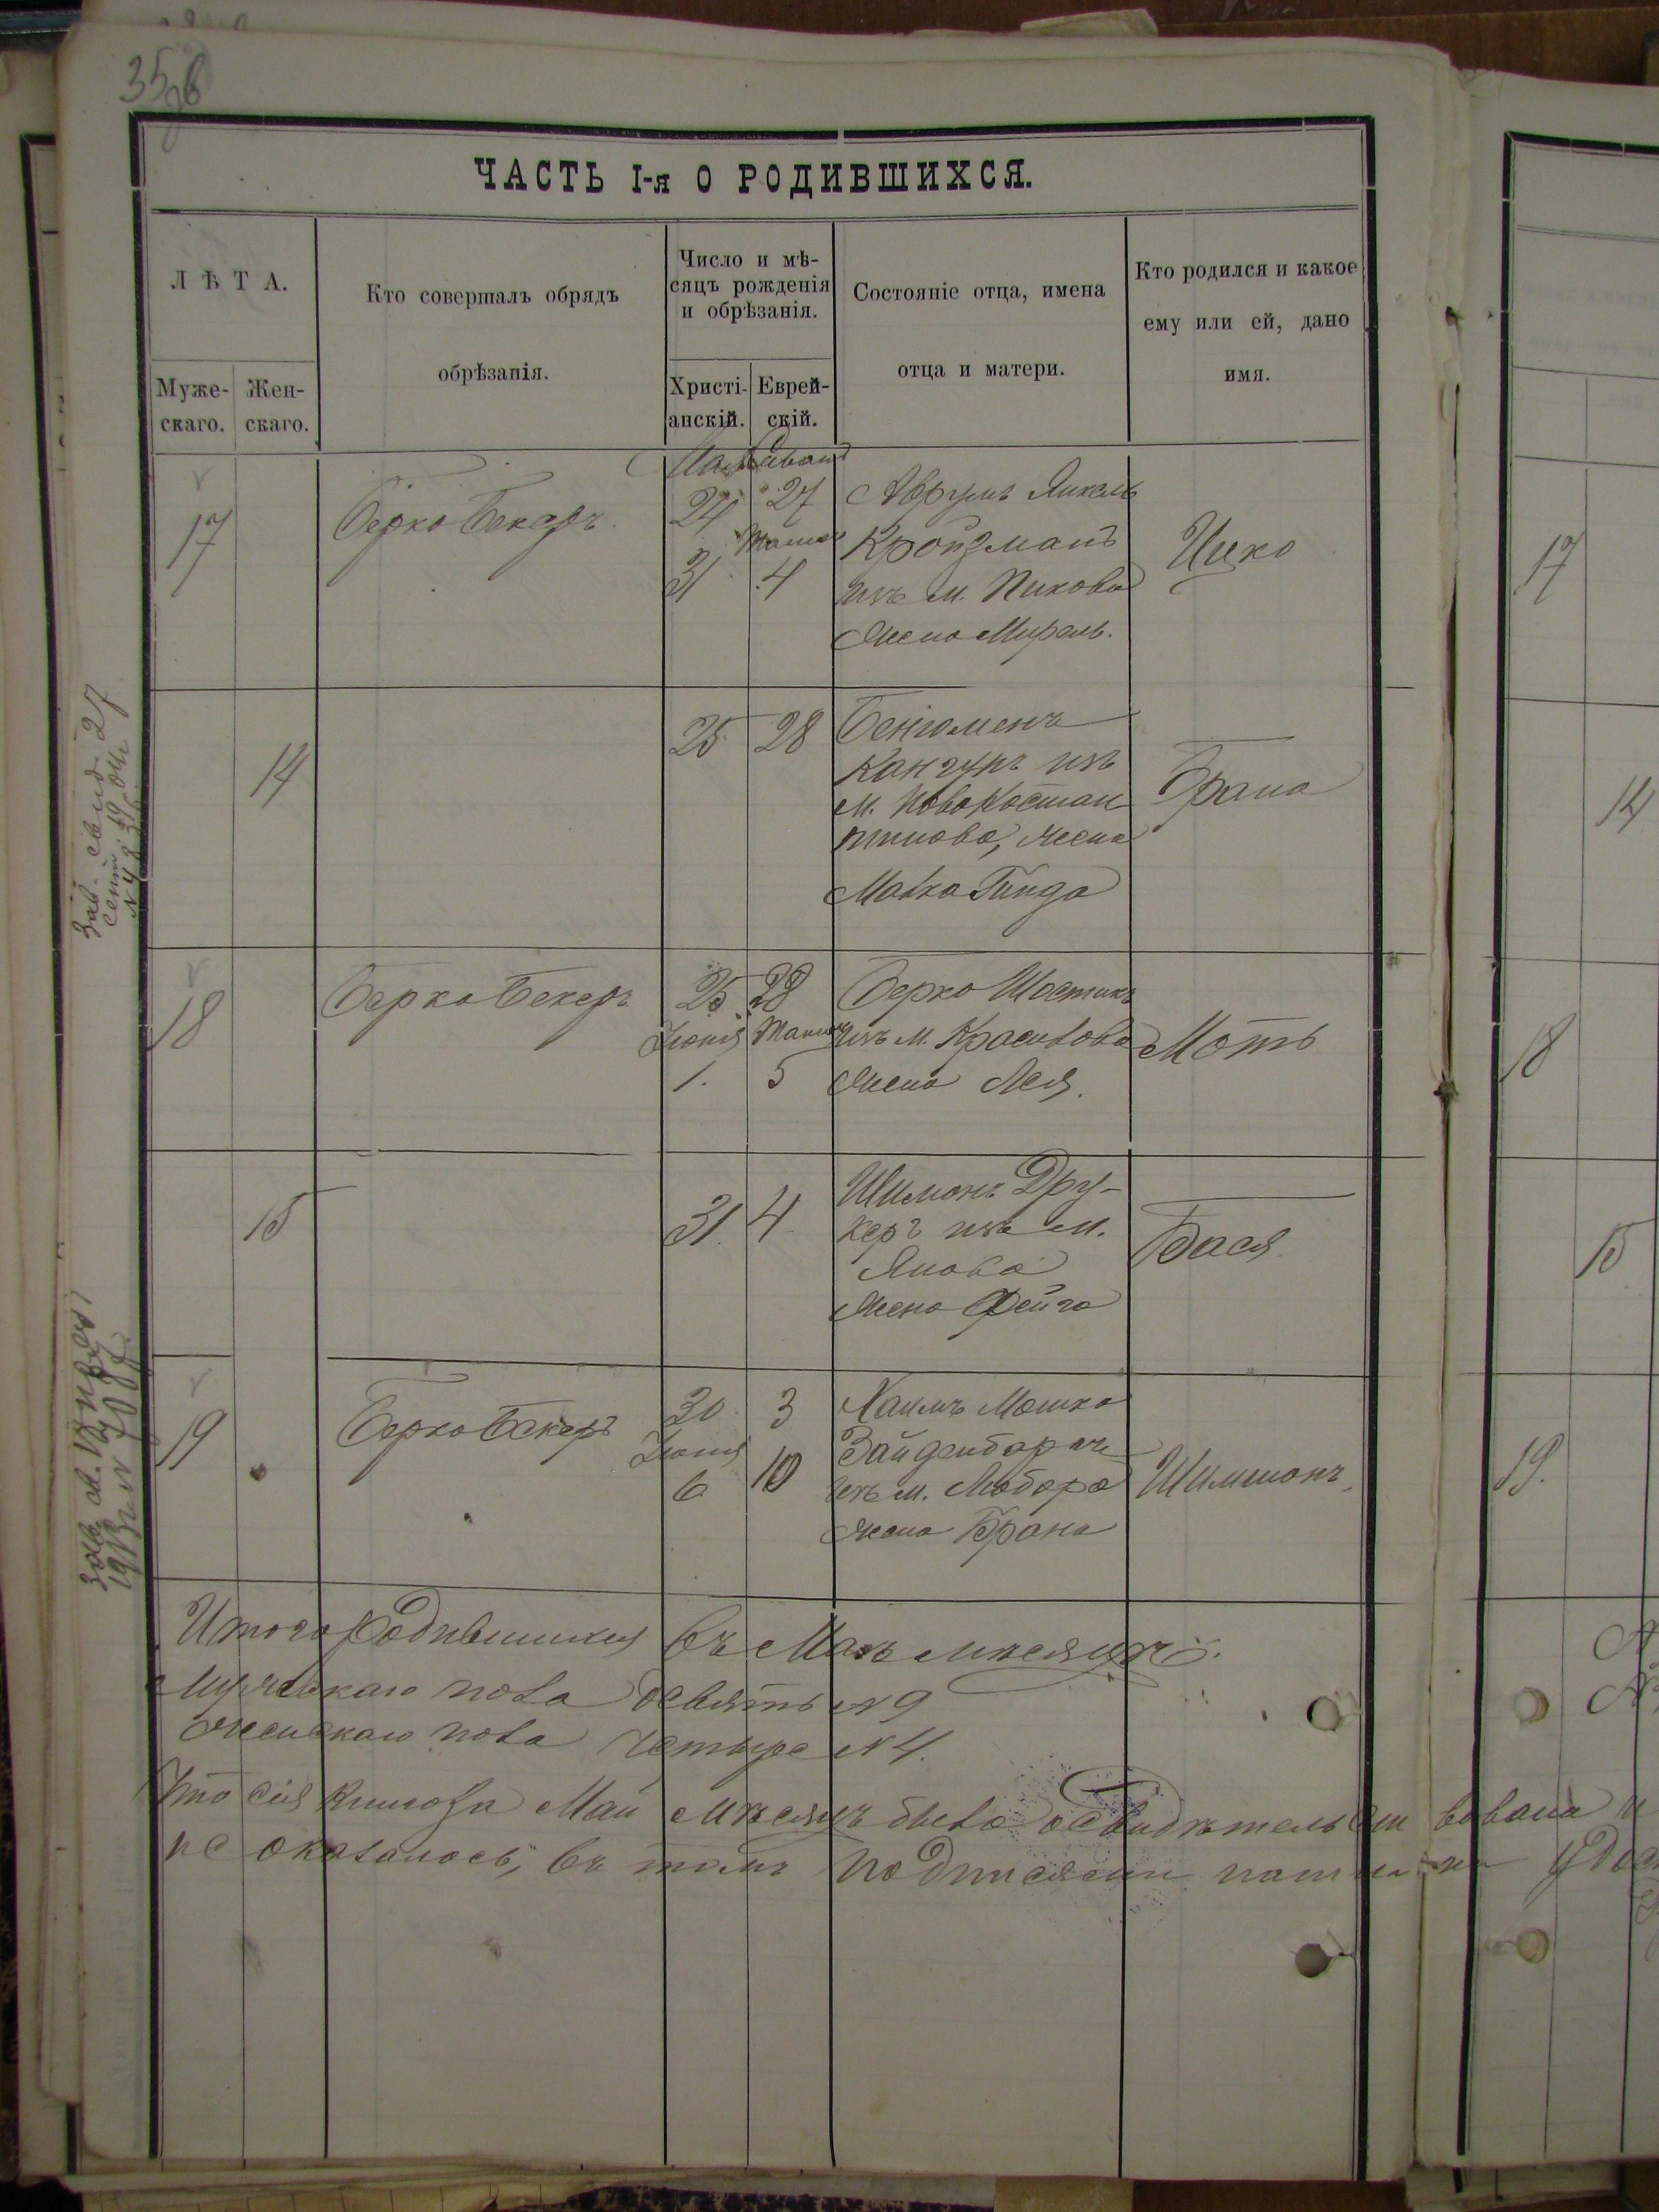 35 об
ЧАСТЬ I-я О РОДИВШИХСЯ.
ЛѢТА.
Муже-
скаго.
Жен-
скаго.
Кто совершалъ обрядъ
обрѣзанія.
Число и мѣ-
сяцъ рожденія
и обрѣзанія.
Христі-
анскій.
Еврей-
скій.
Состояніе отца, имена
отца и матери.
Кто родился и какое
ему или ей, дано
имя.
17
Берко Бекеръ
Мая Сивана
24 27
Тамуз
31 4
Аврумъ Янкель
Кройзманъ
изъ м. Пикова
Жена Мирель.
Ицко
14
25 28
Бенюменъ
Канчуръ изъ
м. Новокостан
тинова, жена
Малка Гинда
Брана
18
Берко Бекеръ
25 28
Іюня Тамуз
1. 5
Берко Шостикъ
изъ м. Красилова
Жена Лея.
Моть
15
31 4
Шимонъ Дру-
керъ изъ м.
Янова
Жена Фейга
Бася
19
Берко Бекеръ
30 3
Іюня
6 10
Хаимъ Мошко
Зайденбергъ
изъ м. Любара
жена Брана
Шимшонъ
Итого Родившихся въ Маѣ мѣсяцѣ.
Мужескаго пола девять N 9
Женскаго пола четыре N 4.
Что сія книга за Май мѣсяцъ была освидѣтельст вована и
не оказалось, въ томъ подписями нашими удос
Зав. свид. 27
сент. 1910 г.
17
14
18
15
19.